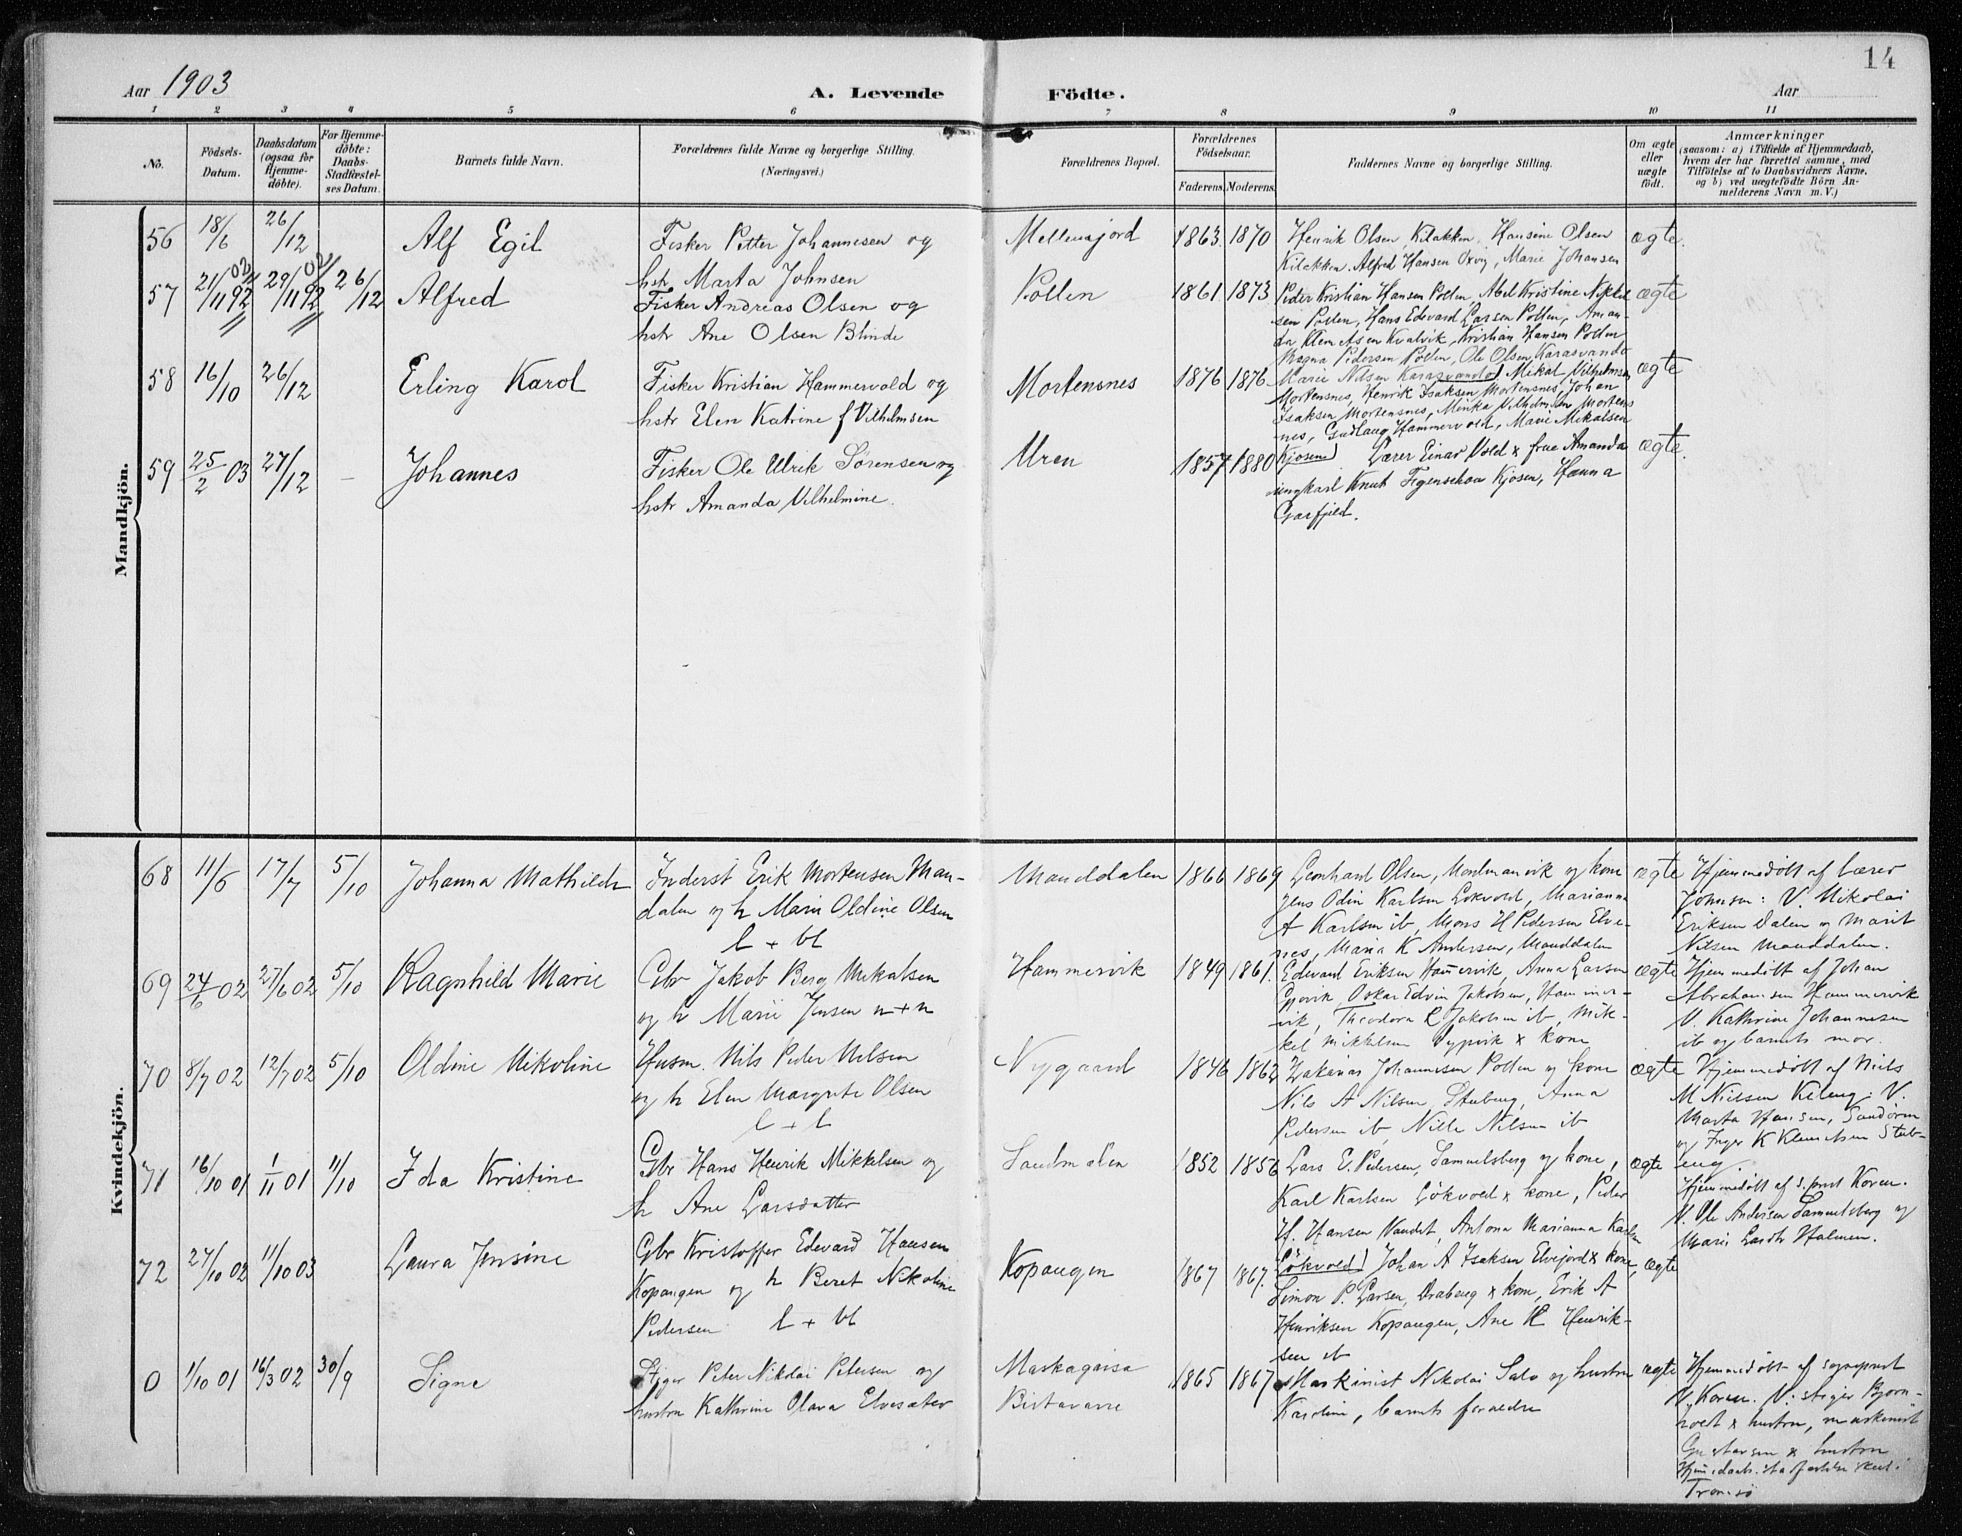 14
Aar 1903
A. Levende Födte.
Aar
1 2 3 4 5 6 7 8 9 10 11
No.
Födsels-Datum.
Daabsdatum (ogsaa for Hjemme-döbte).
For Hjemme-döbte: Daabs-Stadfæstel-ses Datum.
Barnets fulde Navn.
Forældrenes fulde Navne og borgerlige Stilling.
(Næringsvei.)
Forældrenes Bopæl.
Forældrenes Födselsaar.
Faderens. Moderens.
Faddernes Navne og borgerlige Stilling.
Om ægte eller uægte födt.
Anmærkninger
(saasom: a) i Tilfælde af Hjemmedaab,
hvem der har forrettet samme, med
Tilföielse af to Daabsvidners Navne,
og b) ved uægtefödte Börn An-
melderens Navn m. V.)
Mandkjön.
56 18/6 26/12 Alf Egil
Fisker Petter Johannesen og
hstr Marta Johnsen
Mellemjord 1863 1870
Henrik Olsen, Kilakken, Hansine Olsen
Kilakken, Alfred Hansen Oxvig, Marie Johansen
ægte.
57 21/11 92 02 29/11 92 02 26/12 Alfred
Fisker Andreas Olsen og
hstr Ane Olsen Blinde
Pollen 1861 1873
Peder Kristian Hansen Pollen, Abel Kristine Nikol
sen Pollen, Hans Edevard Larsen Pollen, Aman-
da Klemetsen Kvalvik, Kristian Hansen Pollen
Magna Pedersen Pollen, Ole Olsen Karasvando
Marie Nilsen Karasvando
ægte
58 16/10 26/12 Erling Karol
Fisker Kristian Hammervold og
hstr Elen Katrine f Vilhelmsen
Mortensnes 1876 1876
Mikal Vilhelmsen
Mortensnes, Henrik Isaksen Mortensnes, Johan
Isaksen Mortensnes, Minka Vilhelmsen Mortens
nes, Gudlaug Hammervold, Marie Mikalsen
Kjosen
ægte
59 25/2 03 27/12 – Johannes
Fisker Ole Ulrik Sörensen og
hstr Amanda Vilhelmine.
Uren 1857 1880
Lærer Einar Vold x frue Amanda
ungkarl Knut Figenschou Kjosen, Hanna
Garfjeld.
ægte.
Kvindekjön.
68 11/6 17/7 5/10 Johanna Mathilde
Inderst Erik Mortensen Man-
dalen og h Marie Oldine Olsen
l + bl
Manddalen 1866 1869
Leonhard Olsen, Mordmanvik og kone
Jens Odin Karlsen Lökvold, Marianna
A Karlsen ib, Mons H Pedersen Elve-
nes, Maria K Andersen, Manddalen
ægte
Hjemmedöbt af Lærer
Johnsen: V. Nikolai
Eriksen Dalen og Marit
Nilsen Manddalen.
69 24/6 02 27/6 02 5/10 Ragnhild Marie
Gbr Jakob Berg Mikalsen
og h Marie Jensen n+n
Hammervik 1849 1861.
Edevard Eriksen Hamervik, Anna Larsen
Gjovik, Oskar Edvin Jakobsen, Hammer-
vik, Theodora R Jakobsen ib, Mik-
kel Mikkelsen Dypvik x kone
ægte
Hjemmedöbt af Johan
Abrahamsen Hammervik
V. Kathrine Johannesen
ib og barnets mor.
70 8/7 02 12/7 02 5/10 Oldine Nikoline
Husm. Nils Peder Nilsen
og h Elen Margrete Olsen
l + l
Nygaard 1846 1862
Zakarias Johannesen Pollen og kone
Nils A Nilsen, Stubeng, Anna
Pedersen ib, Nille Nilsen ib
ægte
Hjemmedöbt af Niels
M Nielsen Keleng. V.
Marta Hansen, Sandören
og Inger K Klemetsen Stub-
eng.
71 16/10 01 1/11 01 11/10 Ida Kristine
Gbr Hans Henrik Mikkelsen og
h Ane Larsdatter
Sandmælen 1852 1856
Lars E. Pedersen, Samuelsberg og kone,
Karl Karlsen Lökvold x kone, Peder
H. Hansen Vandet, Antona Marianna Karlsen
Lökvold
ægte
Hjemmedöbt af S.prst Koren.
V. Ole Andersen Samuelsberg og
Marie Larsdtr Holmen.
72 27/10 02 11/10 03 Laura Jensine
Gbr Kristoffer Edevard Hansen
Kopangen og h Beret Nikoline
Pedersen l + bl
Kopangen 1867 1867.
Johan A Isaksen Elvejord x kone,
Simon P. Larsen, Draberg x kone, Erik A
Henriksen Kopangen, Ane K Henrik-
sen ib
ægte
0 1/10 01 16/3 02 30/9 Signe
Stiger Peter Nikolai Petersen og
hustru Kathrine Olava Elvesæter
Maskagaisa
Birtavarre 1865 1867
Maskinist Nikolai Salo og hustru
Karoline, barnets forældre
ægte
Hjemmedöbt af sogneprest
V. Koren. V: stiger Bjorn-
holdt x hustru, maskinist
Gustavsen x hustru
Tromsö